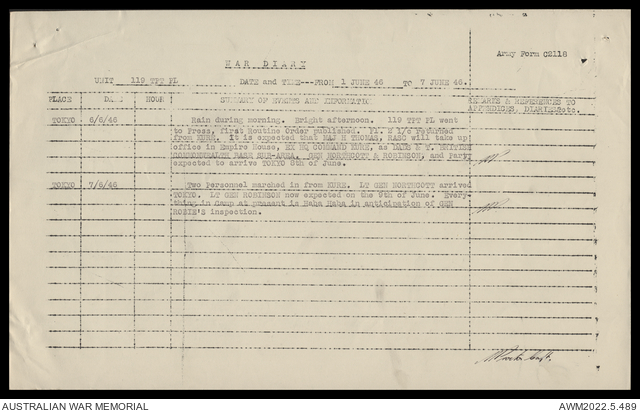 WAR DIARY
Army Form C2118
UNIT 119 TPT PL DATE and TIME---FROM 1 JUNE 46 TO 7 JUNE 46.
PLACE DATE HOUR SUMMARY OF EVENTS AND INFORMATION REMARKS & REFERENCES TO
APPENDICES, DIARIES etc.
TOKYO 6/6/46 Rain during morning. Bright afternoon. 119 TPT PL went
to Press, first Routine Order published. Pl. 2 I/c returned
from KURE. It is expected that MAJ H THOMAS, RASC will take up
office in Empire House, EX HQ COMMAND KURE, as DADS & T. BRITISH
COMMONWEALTH BASE SUB-AREA. GEN NORTHCOTT & ROBINSON, and Party
expected to arrive TOKYO 8th of June.
TOKYO 7/6/46 Two Personnel marched in from KURE. LT GEN NORTHCOTT arrived
TOKYO. LT GEN ROBINSON now expected on the 9th of June. Every-
thing in Camp at present is Haba Haba in anticipation of GEN
ROBIE'S inspection.
AUSTRALIAN WAR MEMORIAL AWM2022.5.489